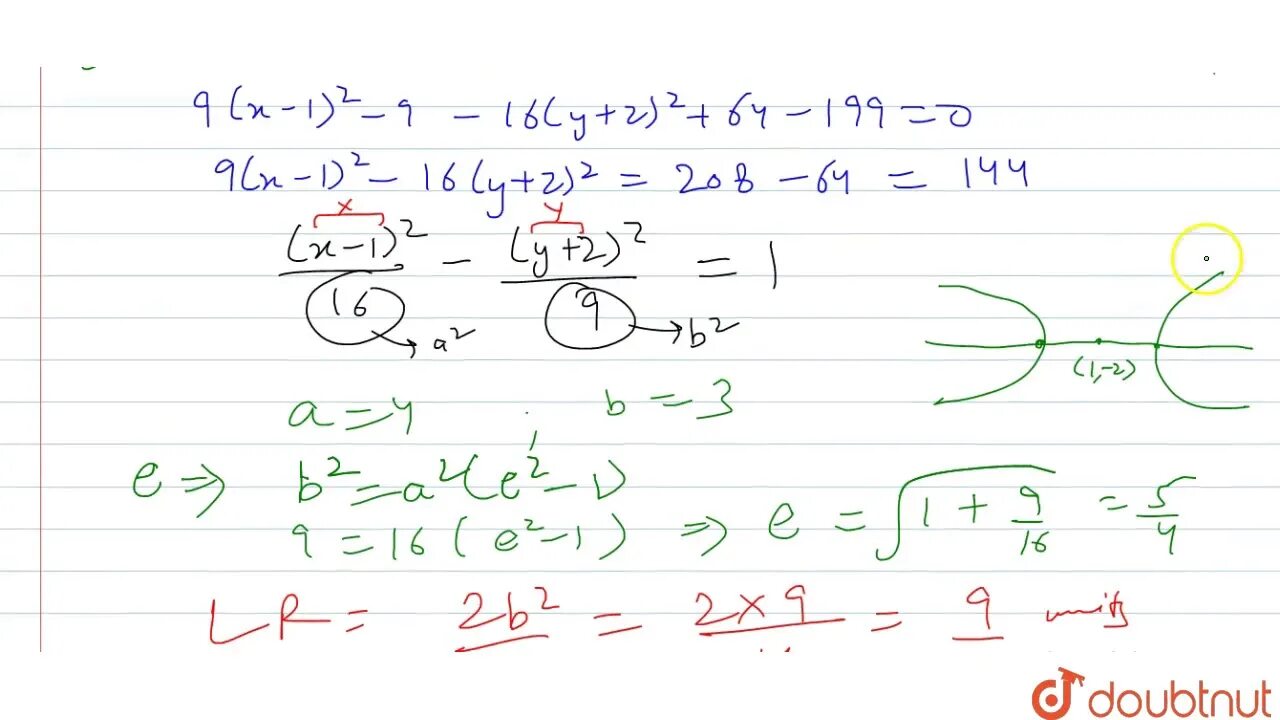 9(x-1)² - 9 - 16(y+2)² + 64 - 199 = 0
9(x-1)² - 16(y+2)² = 208 - 64 = 144
x y
(x-1)² - (y+2)² = 1
16 9
a² b²
(1,-2)
a = 4 , b = 3
e ⇒ b² = a²(e²-1)
9 = 16(e²-1) ⇒ e = √1 + 9/16 = 5/4
LR = 2b² = 2×9 = 9 units
doubtnut